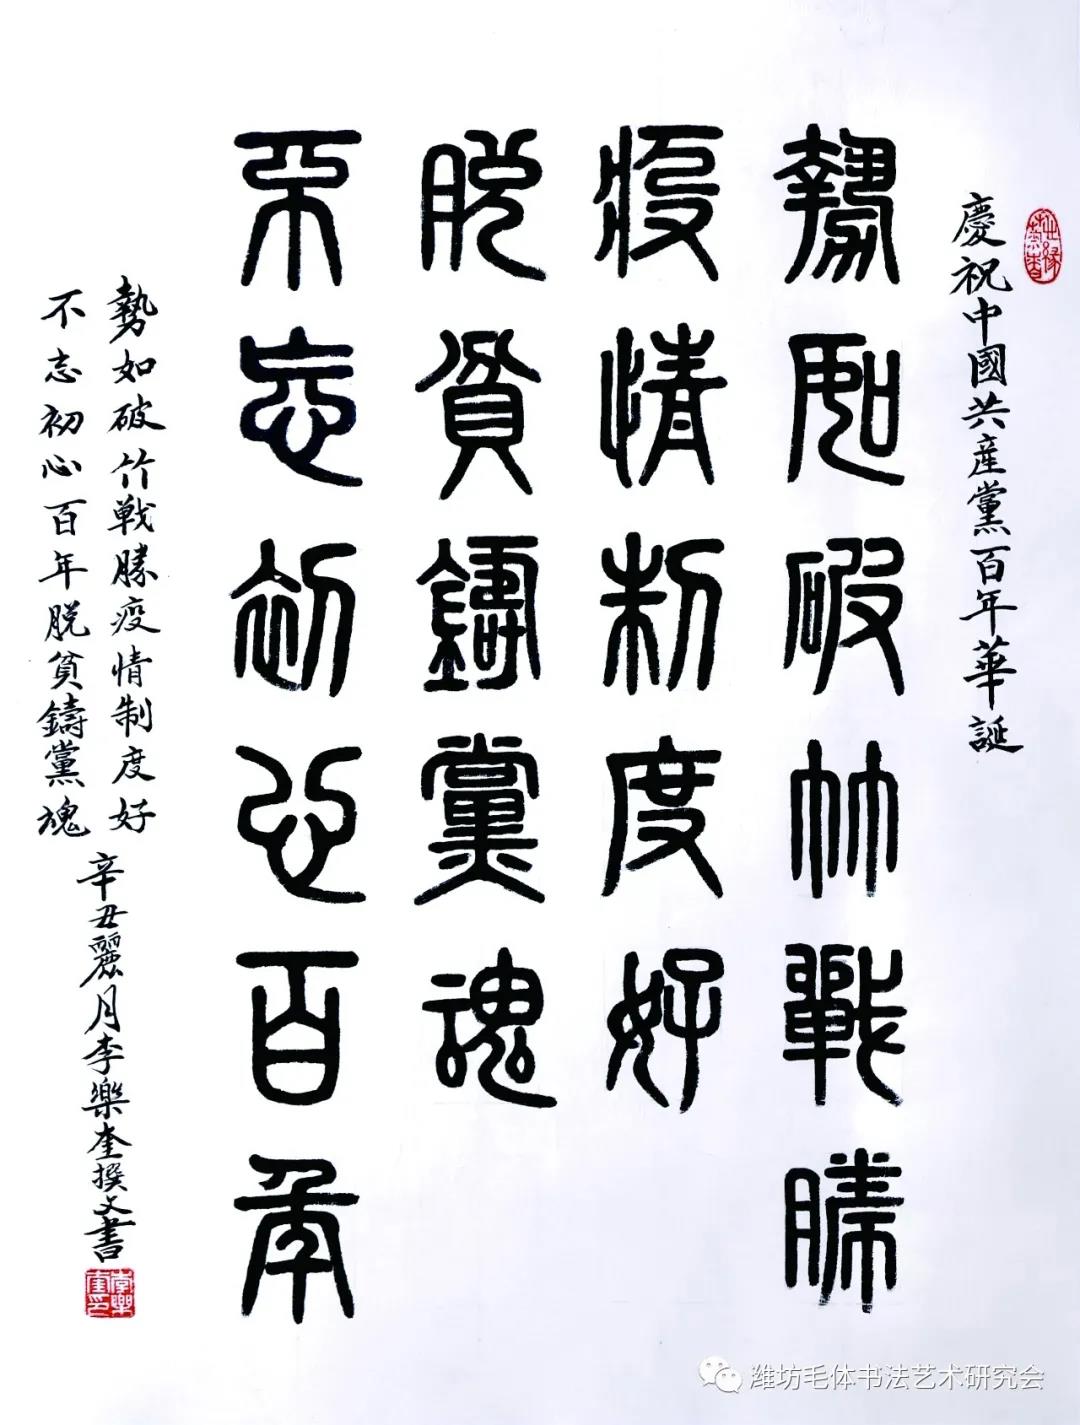 慶祝中國共産黨百年華誕
勢如破竹戰勝
疫情制度好
不忘初心百年
脫貧鑄黨魂
勢如破竹戦勝疫情制度好
不忘初心百年脫貧鑄黨魂
辛丑麗月李樂奎撰文書
李樂奎印
潍坊毛体书法艺术研究会